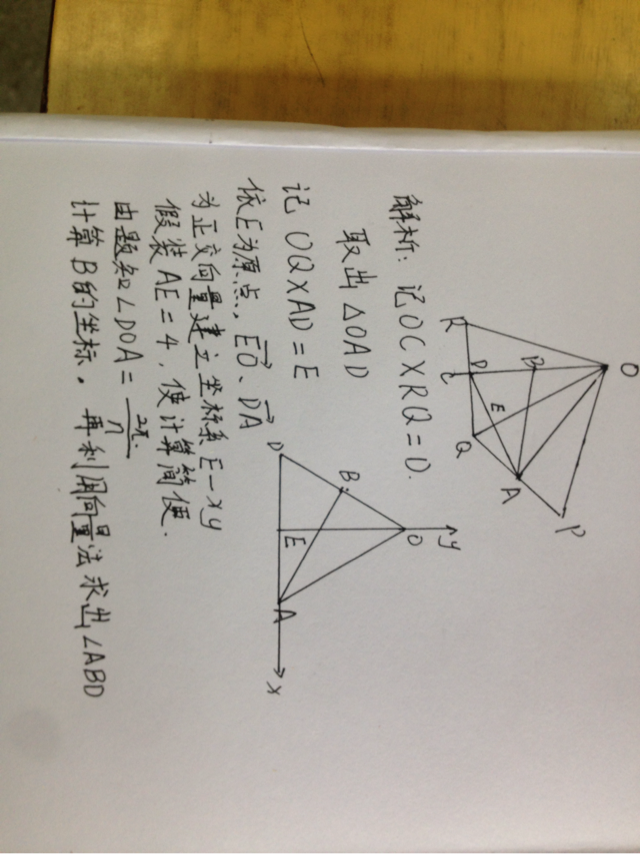 解析：记OC×RQ=D.
取出△OAD
记 OQ×AD=E
依E为原点，EO、DA
为正交向量建立坐标系E-xy
假装AE=4，使计算简便.
由题知∠DOA=2π/n
计算B的坐标，再利用向量法求出∠ABD
O
R
D
C
B
E
Q
A
P
D
B
E
O
y
A
x